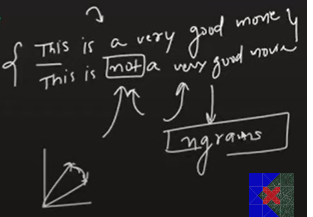 This is a very good movie
This is not a very good movie
ngrams